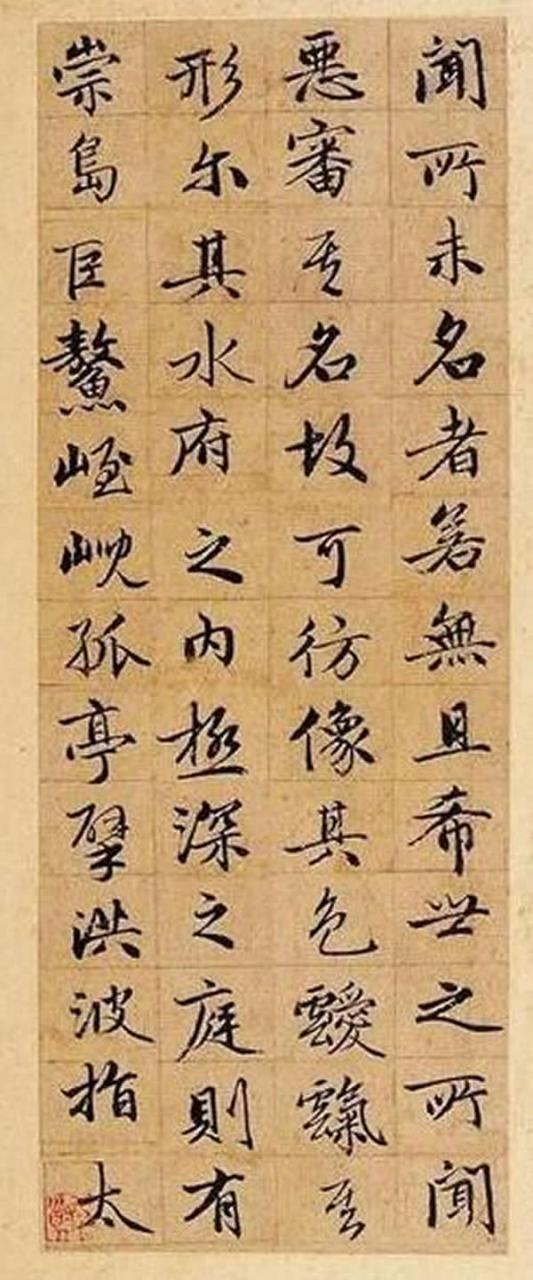 聞所未名者若無且希世之所聞
惡審其名故可彷像其色靉霼其
形尔其水府之内極深之庭則有
崇島巨鰲峌孤亭擘洪波指太